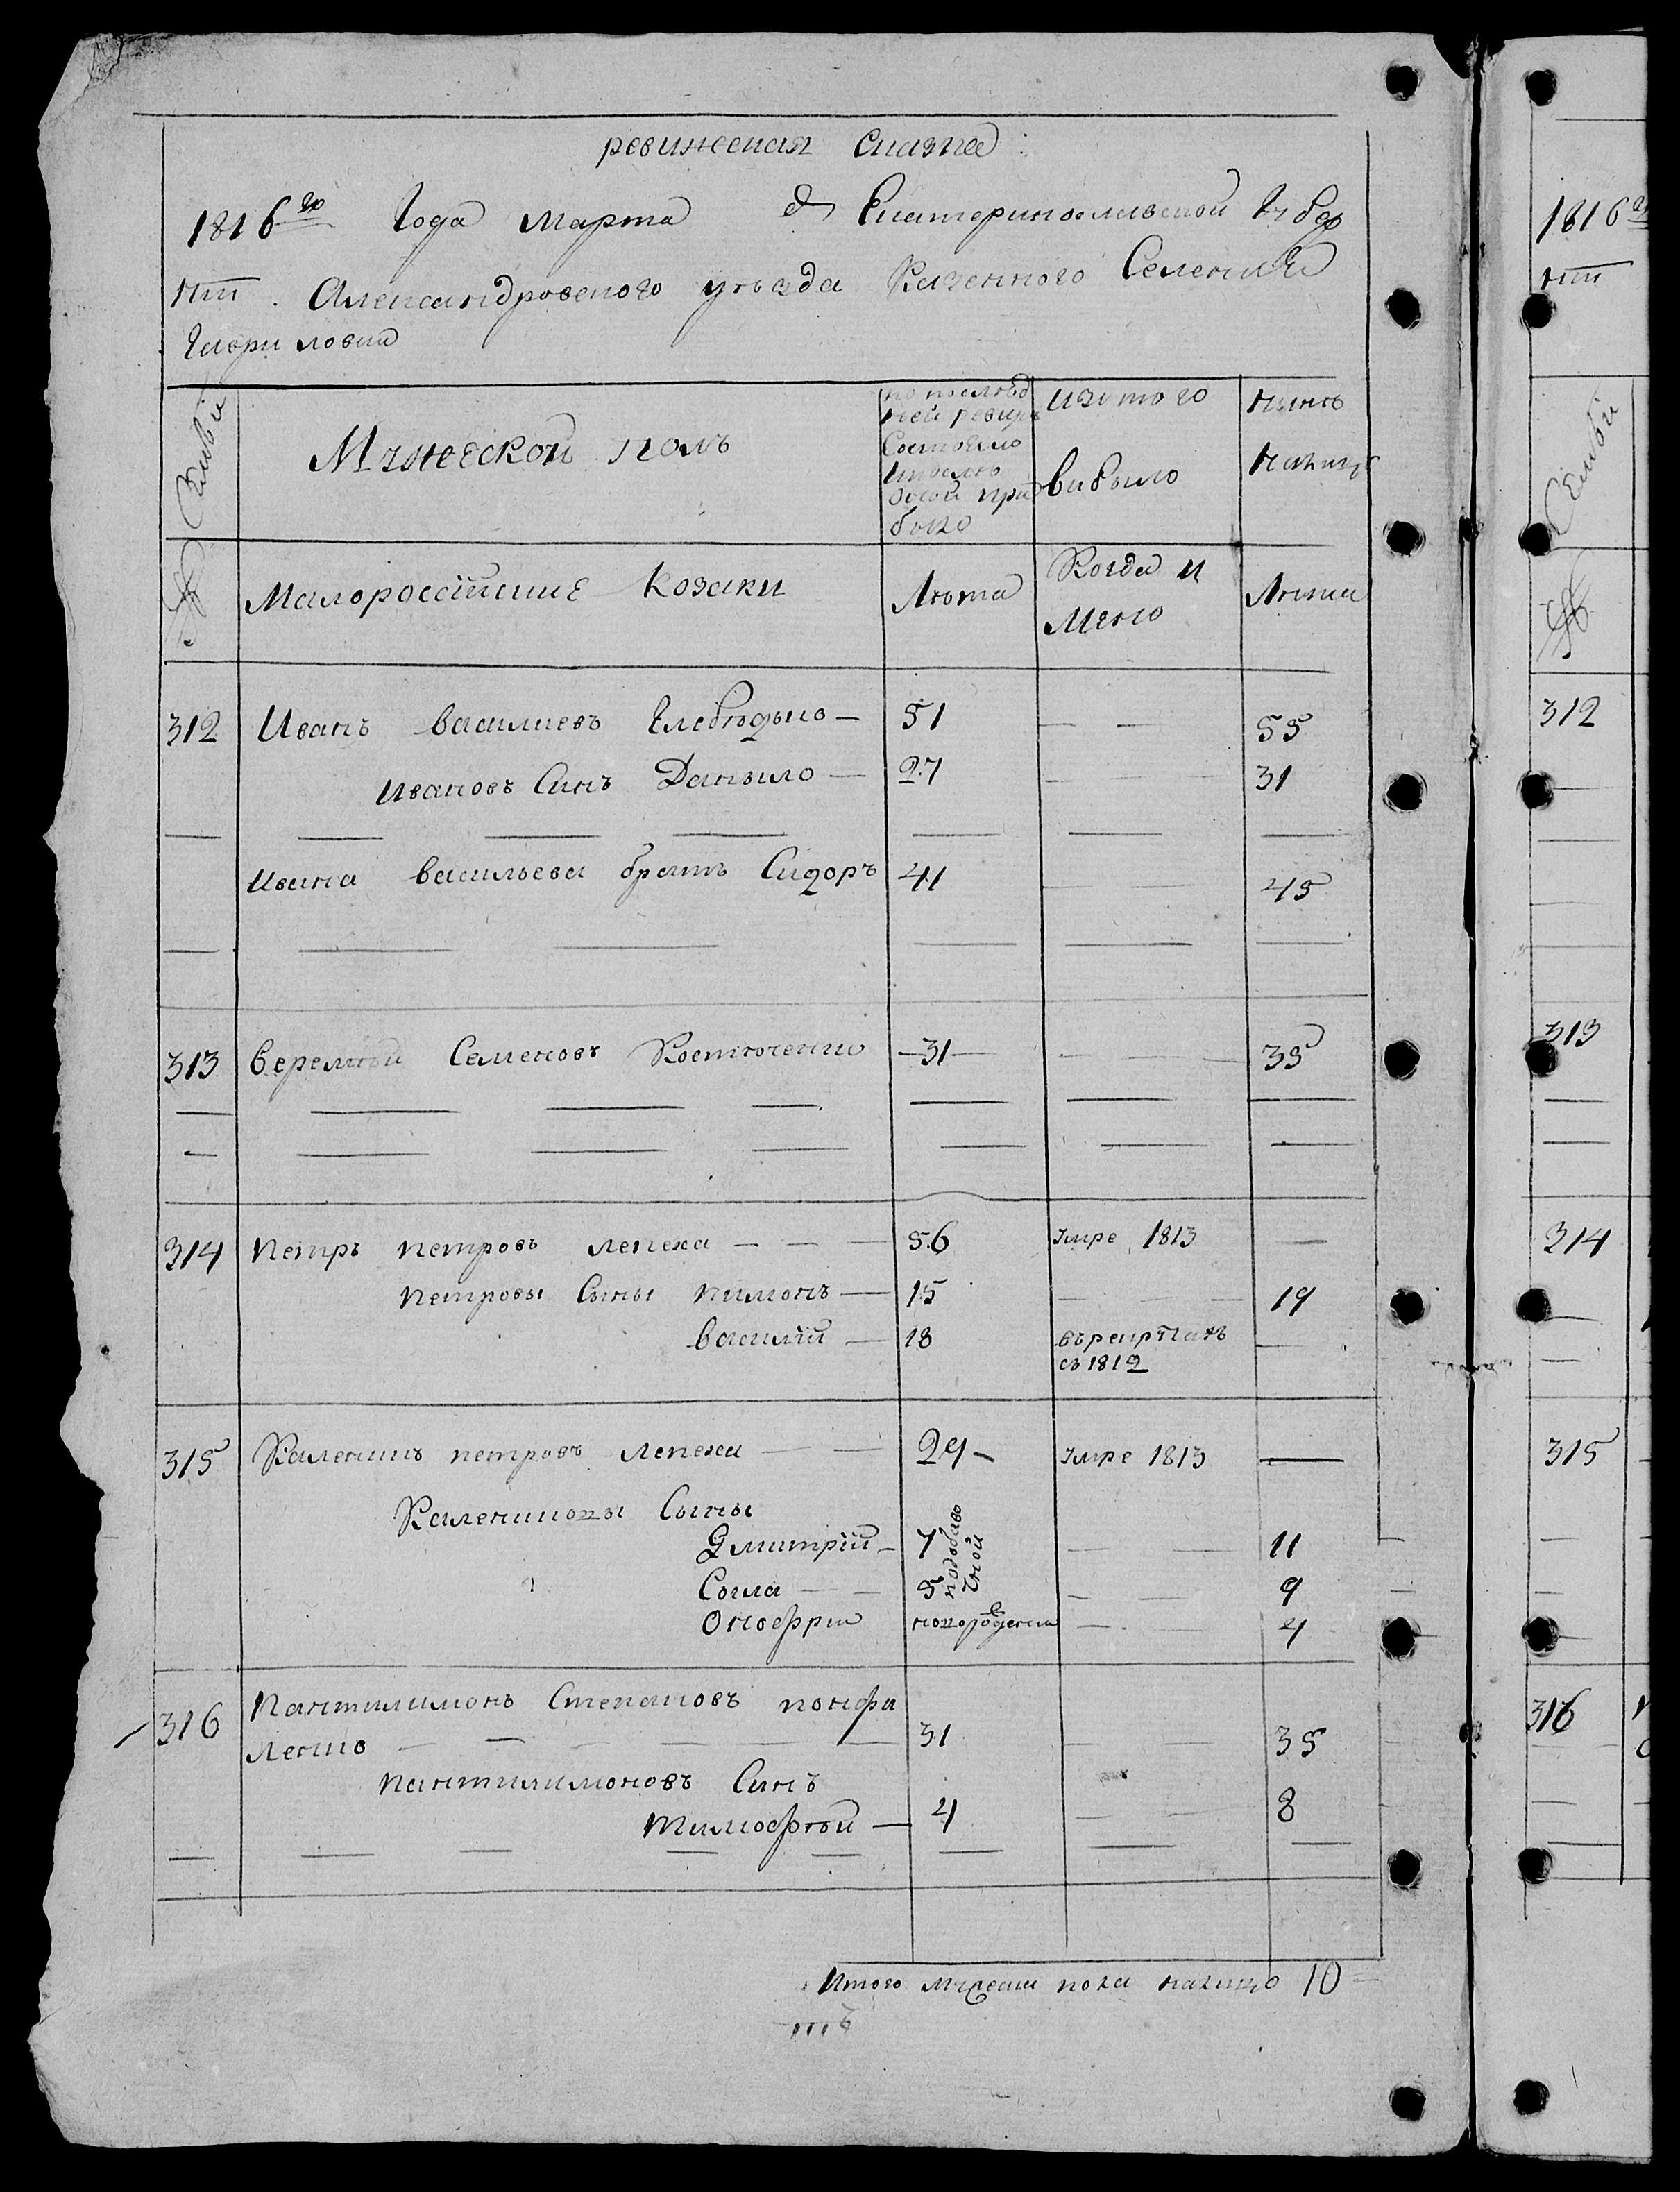 ревижская сказка
1816го года марта д Екатеринославской губер
нии Александровского уѣзда Казенного Селения
Гаврыловки
Семьи
Мужескои полъ
по послѣд
ней ревиз
Состояло
и послѣ
оной при
было
изъ того
выбыло
нынѣ
налицо
№
Малоросiйские козаки
Лѣта
Когда и
Лѣта
312 Иванъ василиевъ 51 — — 55
Ивановъ Синъ Даныло — 27 — 31
Ивана васильева братъ Сидоръ 41 — — 45
313 Веремѣй Семеновъ Костюченко —31— — — 35
314 Петръ петровъ лепеха — — — 56 Умре 1813 —
петровы Сыны пимонъ — 15 — — — 19
василiй — 18 въ рекрутахъ —
съ 1812
315 Каленикъ петровъ лепеха — — 29 — Умре 1813 —
Калениковы Сыны
Дмитрiй — 7 — — 11
5 — — 9
Онофрии новорожденъ — — 4
316 Пантилимонъ Степановъ понфи
ленко — — — — — 31 — — 35
пантилимоновъ Синъ
Тимофѣй — 4 — — 8
Итого мужеска пола налицо 10
1816
нии
Семьи
№
312
313
314
315
316